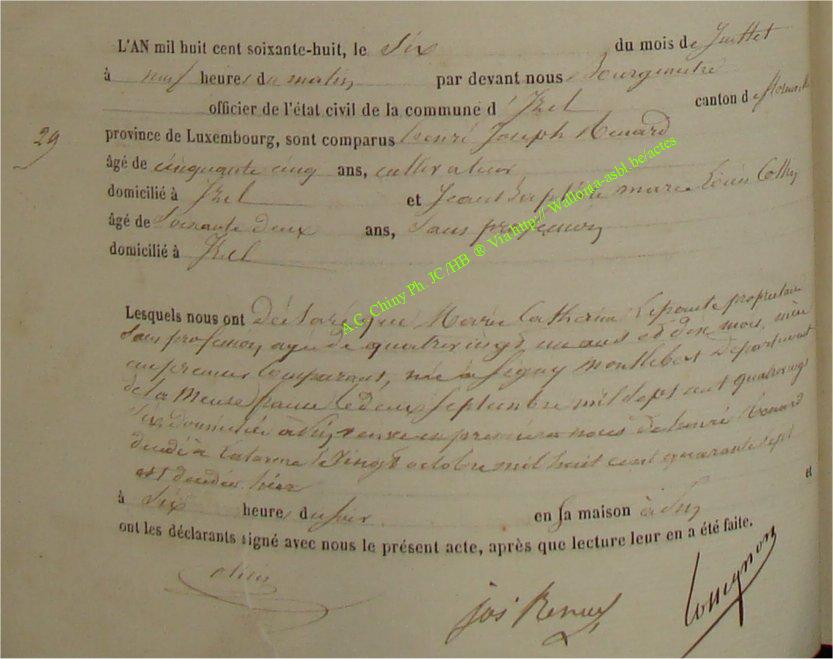 L'AN mil huit cent soixante-huit, le Six du mois de Juillet
à neuf heures du matin par devant nous Bourgmestre
officier de l'état civil de la commune d'Izel canton de
29
province de Luxembourg, sont comparus henri Joseph Renard
âgé de cinquante cinq ans, cultivateur
domicilié à Izel et Jean Baptiste marie Louis
âgé de Soixante deux ans, Sans profession
domicilié à Izel
A.C. Chiny Ph. JC/HB ® Via http:// Wallonia-asbl.be/actes
Lesquels nous ont Déclaré que Marie Catherine propriétaire
Sans profession, agée de quatrevingt un ans et dix mois, mère
au premier Comparant, née à Département
de la Meuse le deux Septembre mil sept cent quatrevingt
Six domiciliée à veuve en de henri Renard
décédé à le Vingt octobre mil huit cent quarante sept
est décédée hier
à Six heures du soir en sa maison à et
ont les déclarants signé avec nous le présent acte, après que lecture leur en a été faite.
jos Renard